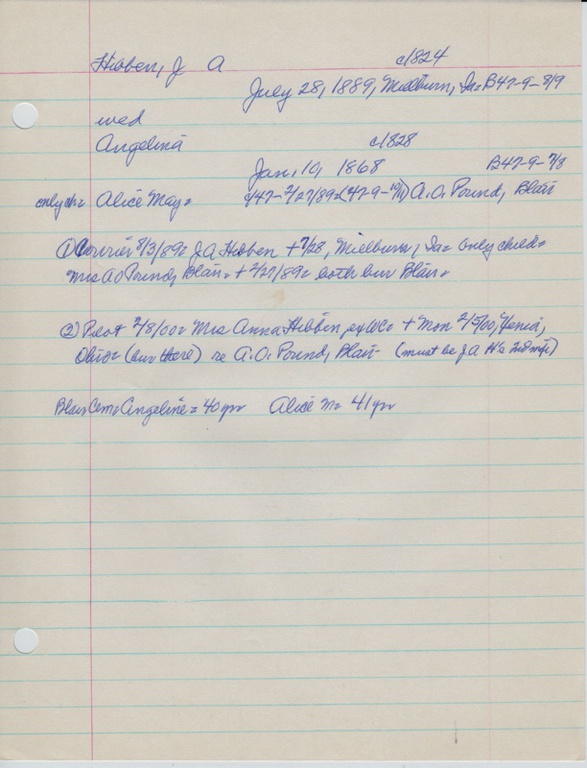 Hibben, J A c1824
July 28, 1889, Millburn, Ia= B47-9-8/9
wed
Angelina c1828
Jan. 10, 1868 B47-9-7/8
only ch= Alice May= c/47-2/27/89=(47-9-10/11) A.O. Pound, Blair
1) Courier 8/3/89= J A Hibben + 7/28, Millburn, Ia= only child=
Mrs AO Pound, Blair= + 2/27/89= both bur Blair=
2) Pilot 2/8/00= Mrs Anna Hibben, ex WC= + Mon 2/5/00, Xenia,
Ohio= (bur there) re A.O. Pound, Blair= (must be J A H's 2nd wife)
Blair Cem, Angeline= 40 yrs Alice M= 41 yr